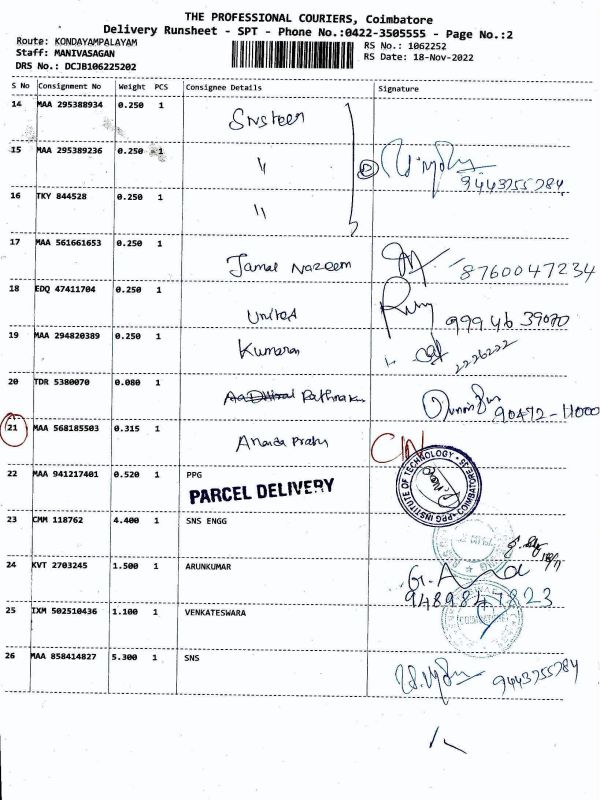 THE PROFESSIONAL COURIERS, Coimbatore
Delivery Runsheet - SPT - Phone No.:0422-3505555 - Page No.:2
Route: KONDAYAMPALAYAM
Staff: MANIVASAGAN
DRS No.: DCJB106225202
RS No.: 1062252
RS Date: 18-Nov-2022
S No Consignment No Weight PCS Consignee Details Signature
14 MAA 295388934 0.250 1 SNSteen
15 MAA 295389236 0.250 1 " 9443755784
16 TKY 844528 0.250 1 "
17 MAA 561661653 0.250 1 Jamal Nazeem 8760047234
18 EDQ 47411704 0.250 1 United 999.46 39070
19 MAA 294820389 0.250 1 Kumaran 2226222
20 TDR 5380070 0.080 1 Rathna 90472-11000
21 MAA 568185503 0.315 1 Ananda Prabu CIN
22 MAA 941217401 0.520 1 PPG
PARCEL DELIVERY
PPG INSTITUTE OF TECHNOLOGY COIMBATORE-35
23 CMM 118762 4.400 1 SNS ENGG
24 KVT 2703245 1.500 1 ARUNKUMAR
9489847823
25 IXM 502510436 1.100 1 VENKATESWARA
COIMBATORE
26 MAA 858414827 5.300 1 SNS 9443755784